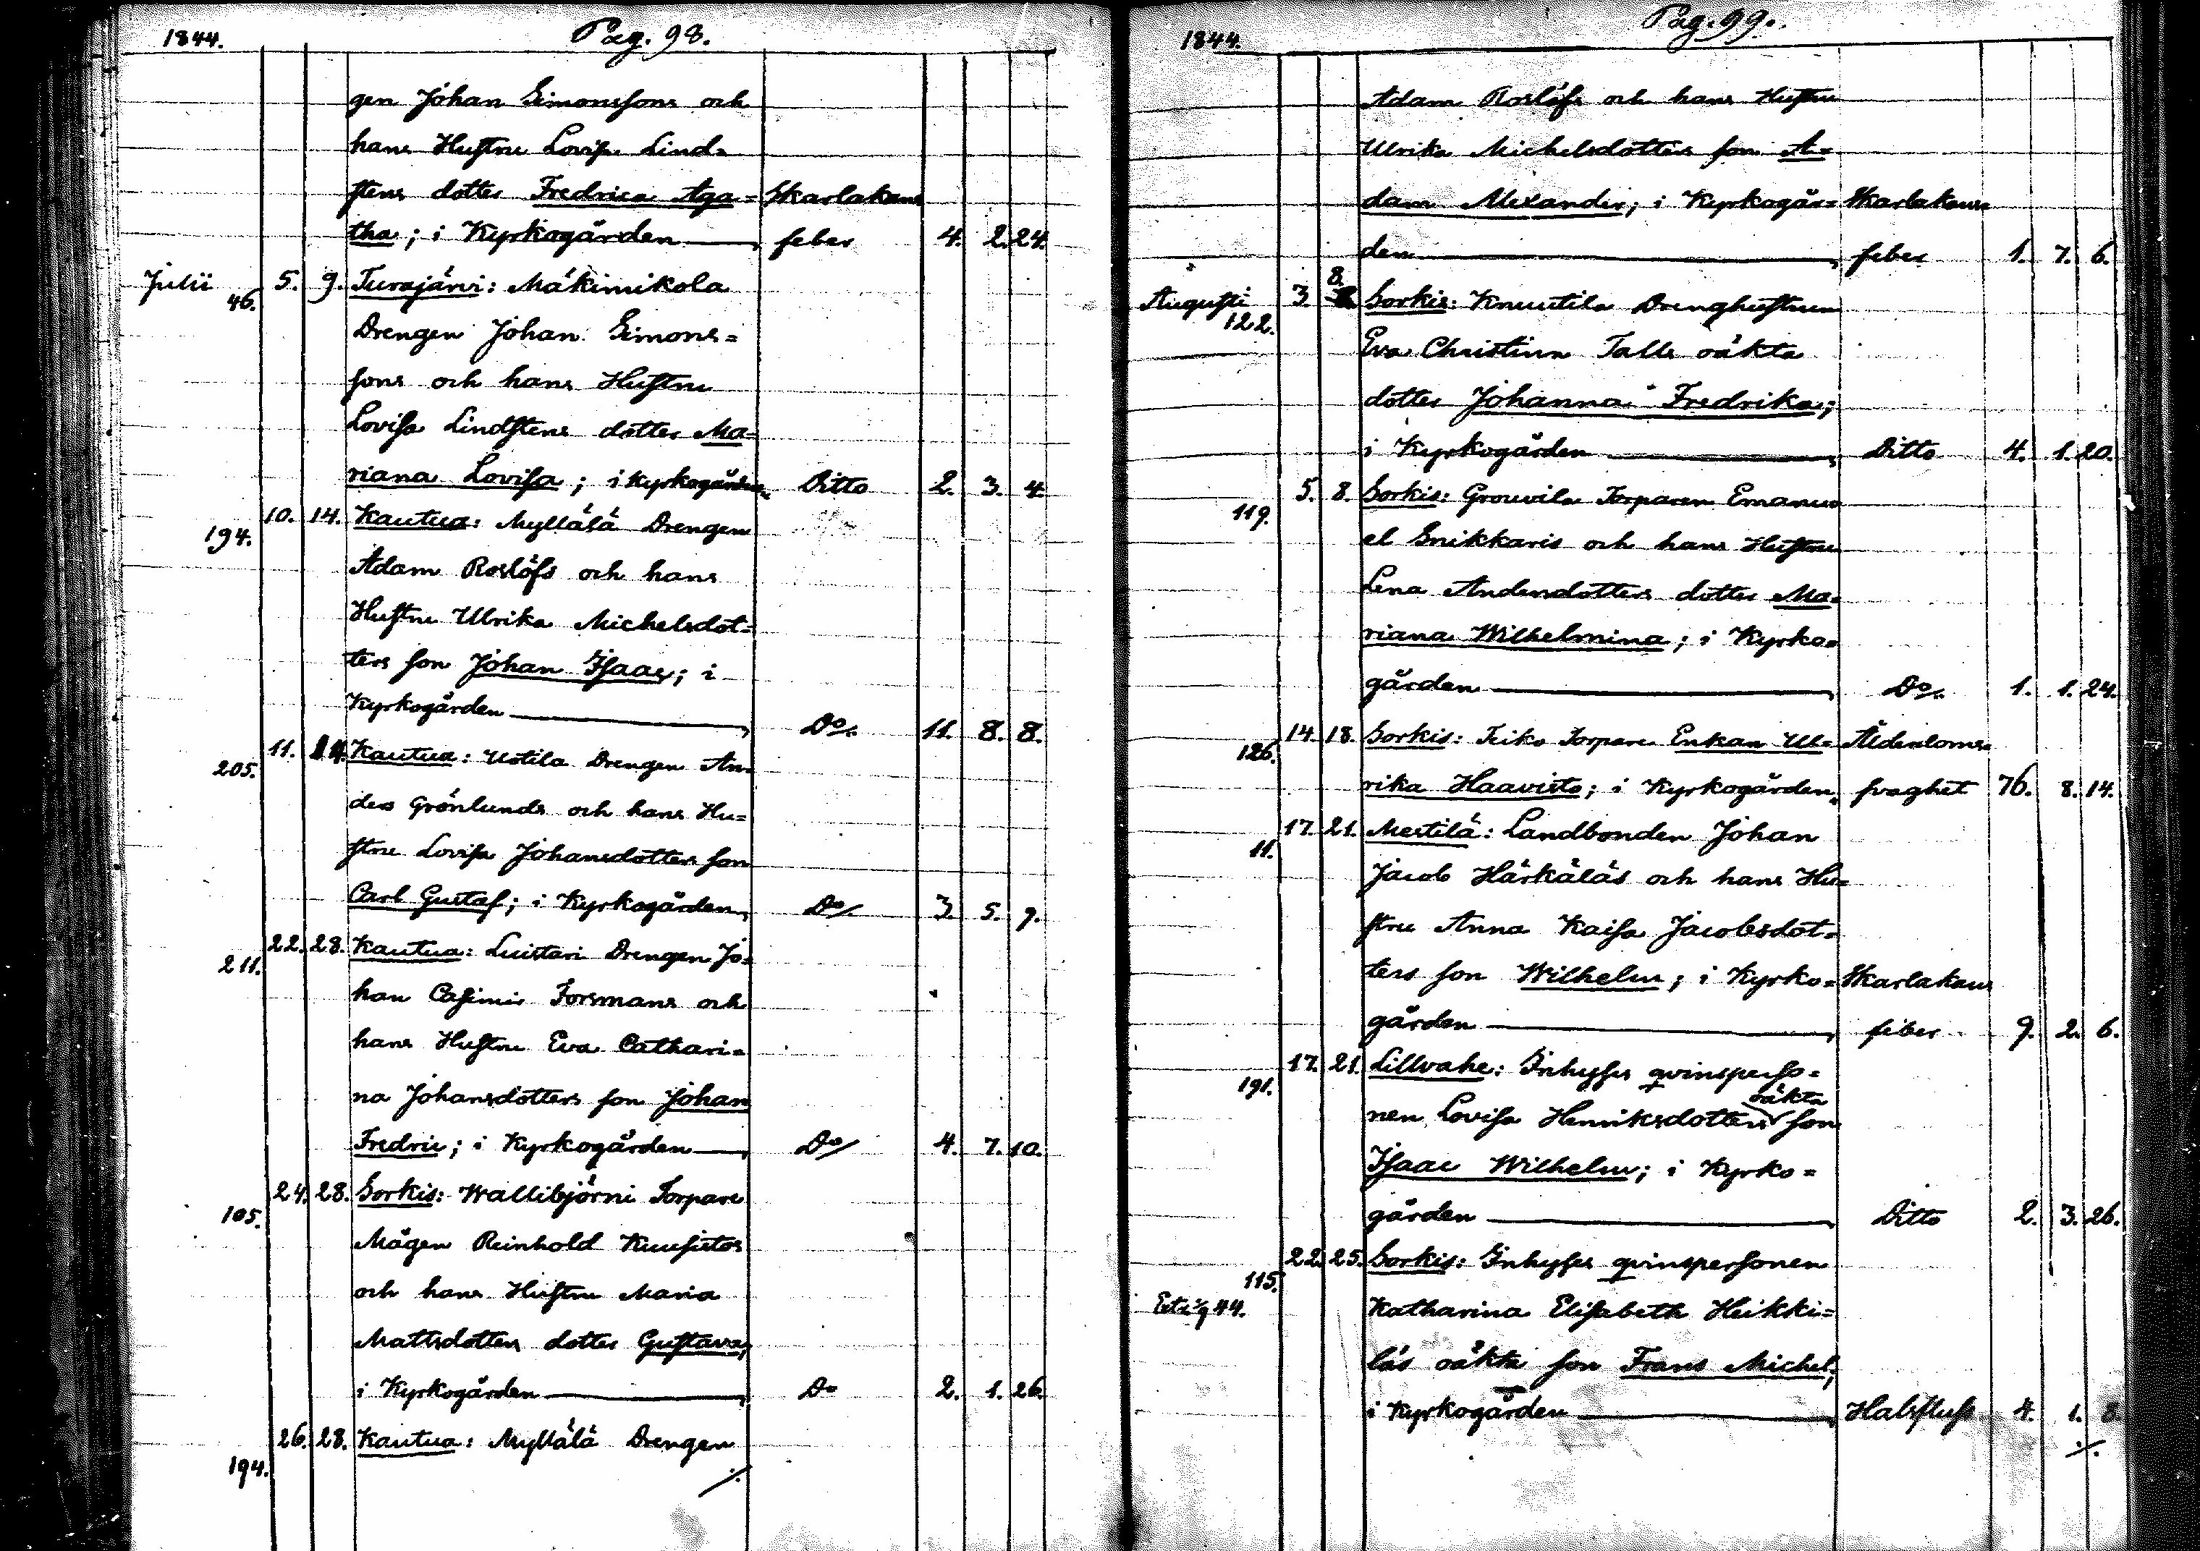 1844. Pag. 98.
gen Johan Simonssons och
hans Hustru Lovisa Lind-
stens dotter Fredrica Aga- Skarlakans
tha; i Kyrkogården feber 4. 2. 24.
Julii 46. 5. 9. Turajärvi: Mäkimikola
Drengen Johan Simons-
sons och hans Hustru
Lovisa Lindstens dotter Ma-
riana Lovisa; i kyrkogården Ditto 2. 3. 4.
194. 10. 14. Kautua: Myllälä Drengen
Adam Roslöfs och hans
Hustru Ulrika Michelsdot-
ters son Johan Isaac; i
Kyrkogården Do/. 11. 8. 8.
205. 11. 14. Kautua: Uotila Drengen An-
ders Grönlunds och hans Hu-
stru Lovisa Johansdotters son
Carl Gustaf; i Kyrkogården Do/ 3. 5. 9.
211. 22. 28. Kautua: Luistari Drengen Jo-
han Casimir Forsmans och
hans Hustru Eva Cathari-
na Johansdotters son Johan
Fredric; i Kyrkogården Do/ 4. 7. 10.
105. 24. 28. Sorkis: Wallibjörni Torpare
Mågen Reinhold Kuusistos
och hans Hustru Maria
Mattsdotters dotter Gustava;
i Kyrkogården Do 2. 1. 26.
194. 26. 28. Kautua: Myllälä Drengen
./.
1844. Pag. 99.
Adam Roslöfs och hans Hustru
Ulrika Michelsdotters son A-
dam Alexander; i Kyrkogår- Skarlakans
den feber 1. 7. 6.
Augusti 122. 3. 8. Sorkis: Knuutila Drenghustrun
Eva Christina Talls oäkta
dotter Johanna Fredrika;
i Kyrkogården Ditto 4. 1. 20.
119. 5. 8. Sorkis: Grouvila Torparen Emanu-
el Snikkaris och hans Hustru
Lena Andersdotters dotter Ma-
riana Wilhelmina; i Kyrko-
gården Do/. 1. 1. 24.
126. 14. 18. Sorkis: Teiko Torpare Enkan Ul- Ålderdoms-
rika Haavisto; i Kyrkogården svaghet 76. 8. 14.
11. 17. 21. Mestilä: Landbonden Johan
Jacob Härkäläs och hans Hu-
stru Anna Kaisa Jacobsdot-
ters son Wilhelm; i Kyrko- Skarlakans
gården feber 9. 2. 6.
191. 17. 21. Lillvahe: Inhyses qvinsperso-
nen Lovisa Henriksdotters oäkta son
Isaac Wilhelm; i Kyrko-
gården Ditto 2. 3. 26.
115. 22. 25. Sorkis: Inhyses qvinspersonen
44. Katharina Elisabeth Heikki-
läs oäkta son Frans Michel;
i Kyrkogården Halsfluss 4. 1. 8.
./.